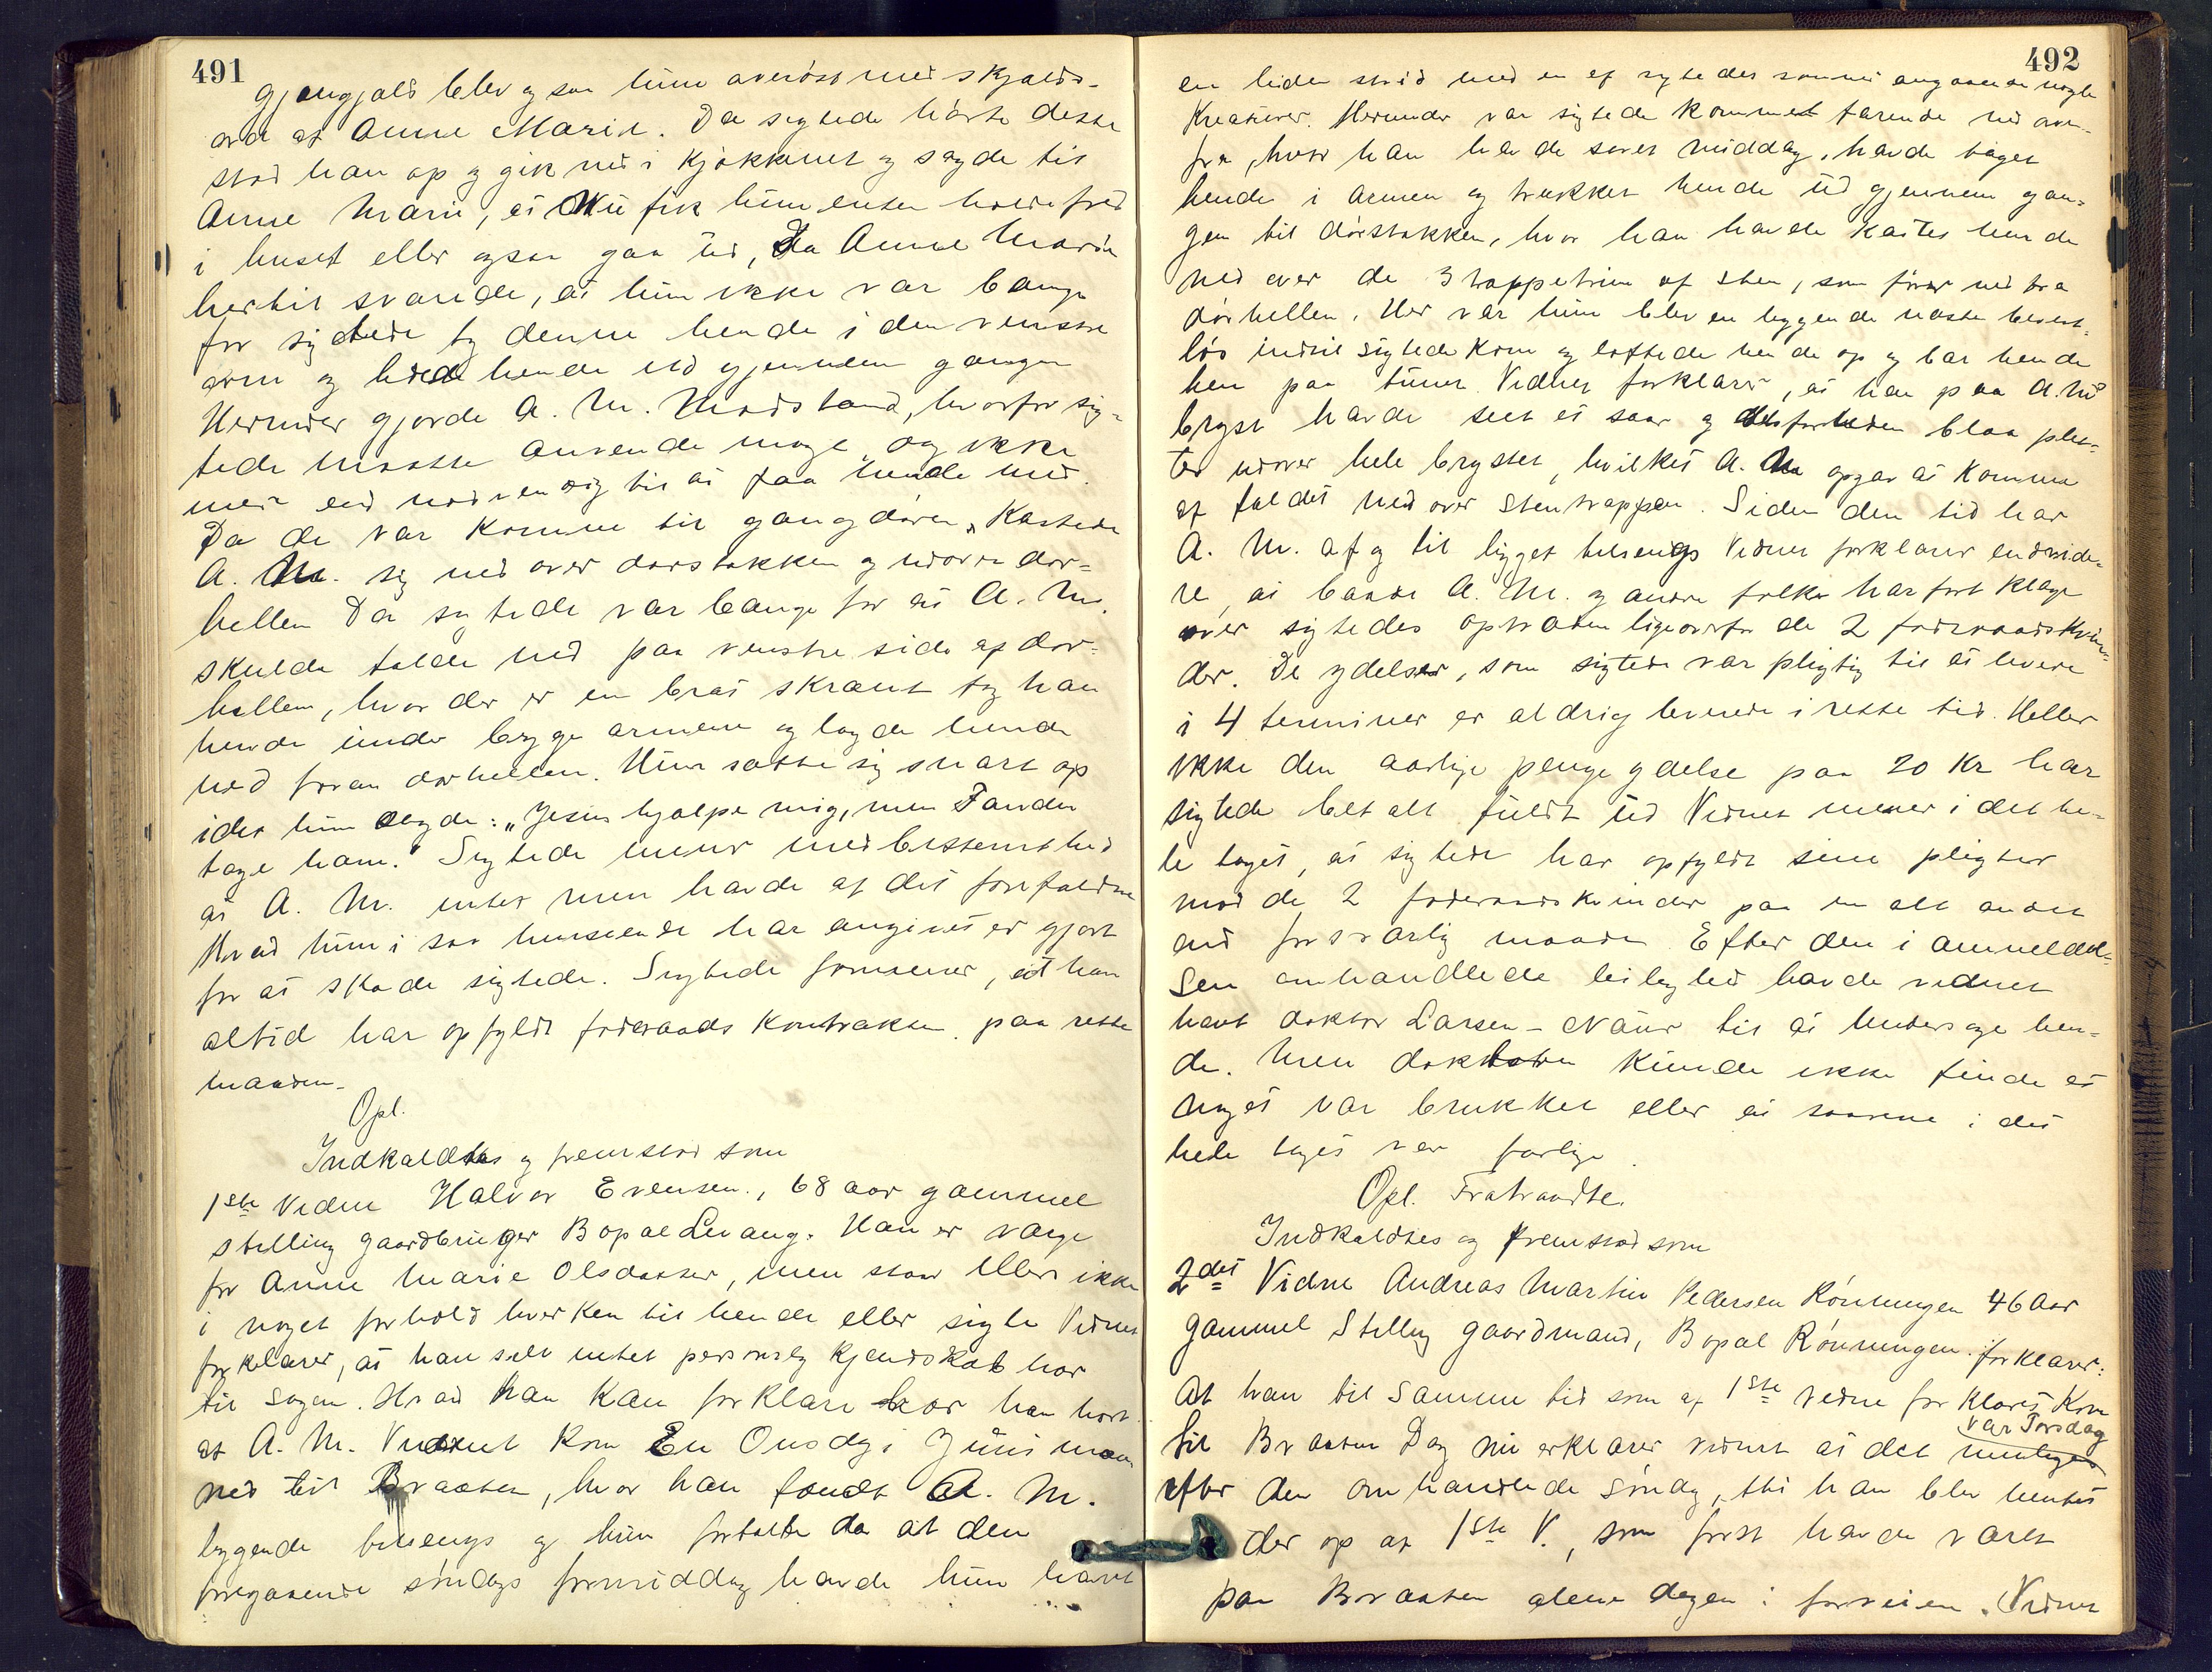 491
gjengjæld blev ogsaa hun overöst med skjælds-
ord af Anne Marie. Da sigtede hörte dette
stod han op og gik ned i kjökkenet og sagde til
Anne Marie, at nu fik hun enten holde fred
i huset eller ogsaa gaa ud, Da Anne Marie
hertil svarede, at hun ikke var bange
for sigtede tog denne hende i den venstre
arm og ledede hende ud gjennem gangen
Herunder gjorde A. M. Modstand, hvorfor sig-
tede maatte anvende magt dog ikke
mer end nödvendig til at faa hende ud.
Da de var komne til gangdören, kastede
A. M. sig ned over dorstokken og udover dor-
hellen Da sigtede var bange for at A. M.
skulde falde ned paa venstre side af dor-
hellen, hvor der er en brat skrænt tog han
hende under begge armene og lagde hende
ned foran dorhellen. Hun satte sig snart op
idet hun sagde: „Jesus hjælpe mig, men Fanden
tage ham." Sigtede mener med bestemthed
at A. M. intet men havde af det forefaldne
Hvad hun i saa henseende har angivet er gjort
for at skade sigtede. Sigtede formener, at han
altid har opfyldt föderaads kontrakten paa rette
maaden.
Opl.
Indkaldtes og fremstod som
1ste Vidne Halvor Evensen, 68 aar gammel
stilling gaardbruger Bopæl Levang. Han er værge
for Anne Marie Olsdatter, men staar ellers ikke
i noget forhold hverken til hende eller sigte Vidnet
forklarer, at han selv intet personlig kjendskab har
til sagen. Hvad han kan forklare har han hört
af A. M. Vidnet kom En Onsdag i Juni maa-
ned til Braaten, hvor han fandt A. M.
liggende tilsengs og hun fortalte da at den
foregaaende söndags formiddag havde hun havt
492
en liden strid med en af sigtedes sönner angaaende nogle
Kreaturer. Herunder var sigtede kommet farende ned oven-
fra, hvor han havde sovet middag, havde taget
hende i armen og trukket hende ud gjennem gan-
gen til dörstokken, hvor han havde kastet hende
ned over de 3 trappetrin af sten, som förer ned fra
dörhellen. Her var hun blev en liggende næste bevist-
lös indtil sigtede kom og löftede hende op og bar hende
hen paa tunet. Vidnet forklarer, at han paa A. Ms
bryst havde seet et saar og desforuden blaa plet-
ter udover hele brystet, hvilket A. M. opgav at komme
af faldet ned over stentrappen. Siden den tid har
A. M. af og til ligget tilsengs Vidnet forklarer endvide-
re, at baade A. M. og andre folk har fört klage
over sigtedes opræden ligeoverfor de 2 föderaadskvin-
der. De ydelser, som sigtede var pligtig til at levere
i 4 terminer er aldrig leverede i rette tid. Heller
ikke den aarlige pengeydelse paa 20 Kr har
sigtede betalt fuldt ud Vidnet mener i det he-
le taget, at sigtede har opfyldt sine pligter
mod de 2 föderaadskvinder paa en alt andet
end forsvarlig maade. Efter den i anmeldel-
sen omhandlede leilighed havde vidnet
havt doktor Larsen-Naur til at undersöge hen-
de. Men doktoren kunde ikke finde at
noget var brukket eller at saarene i det
hele taget var farlige.
Opl. Fratraadte.
Indkaldtes og fremstod som
2det Vidne Andreas Martin Pedersen Rönningen 46 Aar
gammel Stilling gaardmand, Bopæl Rönningen. forklarer:
At han til samme tid som af 1ste vidne forklaret kom
til Braaten Dog nu erklærer vidnet at det
var Torsdag
efter den omhandlede söndag, thi han blev hentet
der op af 1ste V., som först havde været
paa Braaten alene dagen i forveien. Vidnet